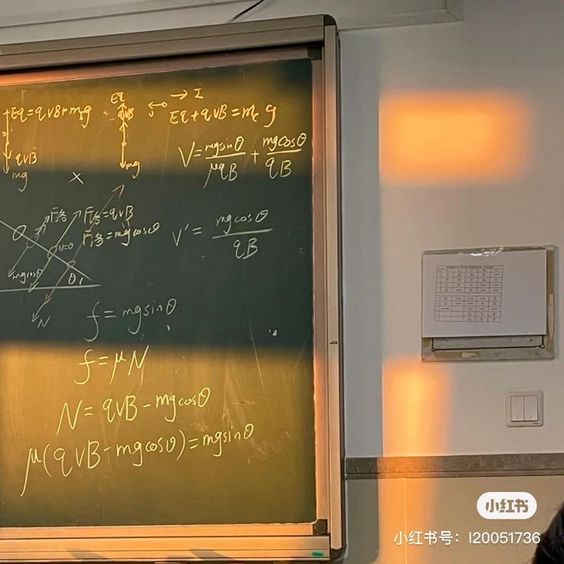 Eq=qvB+m₁g
qvB
mg
Eq
qvB
mg
→ I
Eq+qvB=m₂g
V=mgsinθ/μqB + mgcosθ/qB
×
F洛=qvB
F洛=mgcosθ
V=0
mgsinθ
θ
N
V'=mgcosθ/qB
f=mgsinθ
f=μN
N=qvB-mgcosθ
μ(qvB-mgcosθ)=mgsinθ
小红书
小红书号：I20051736